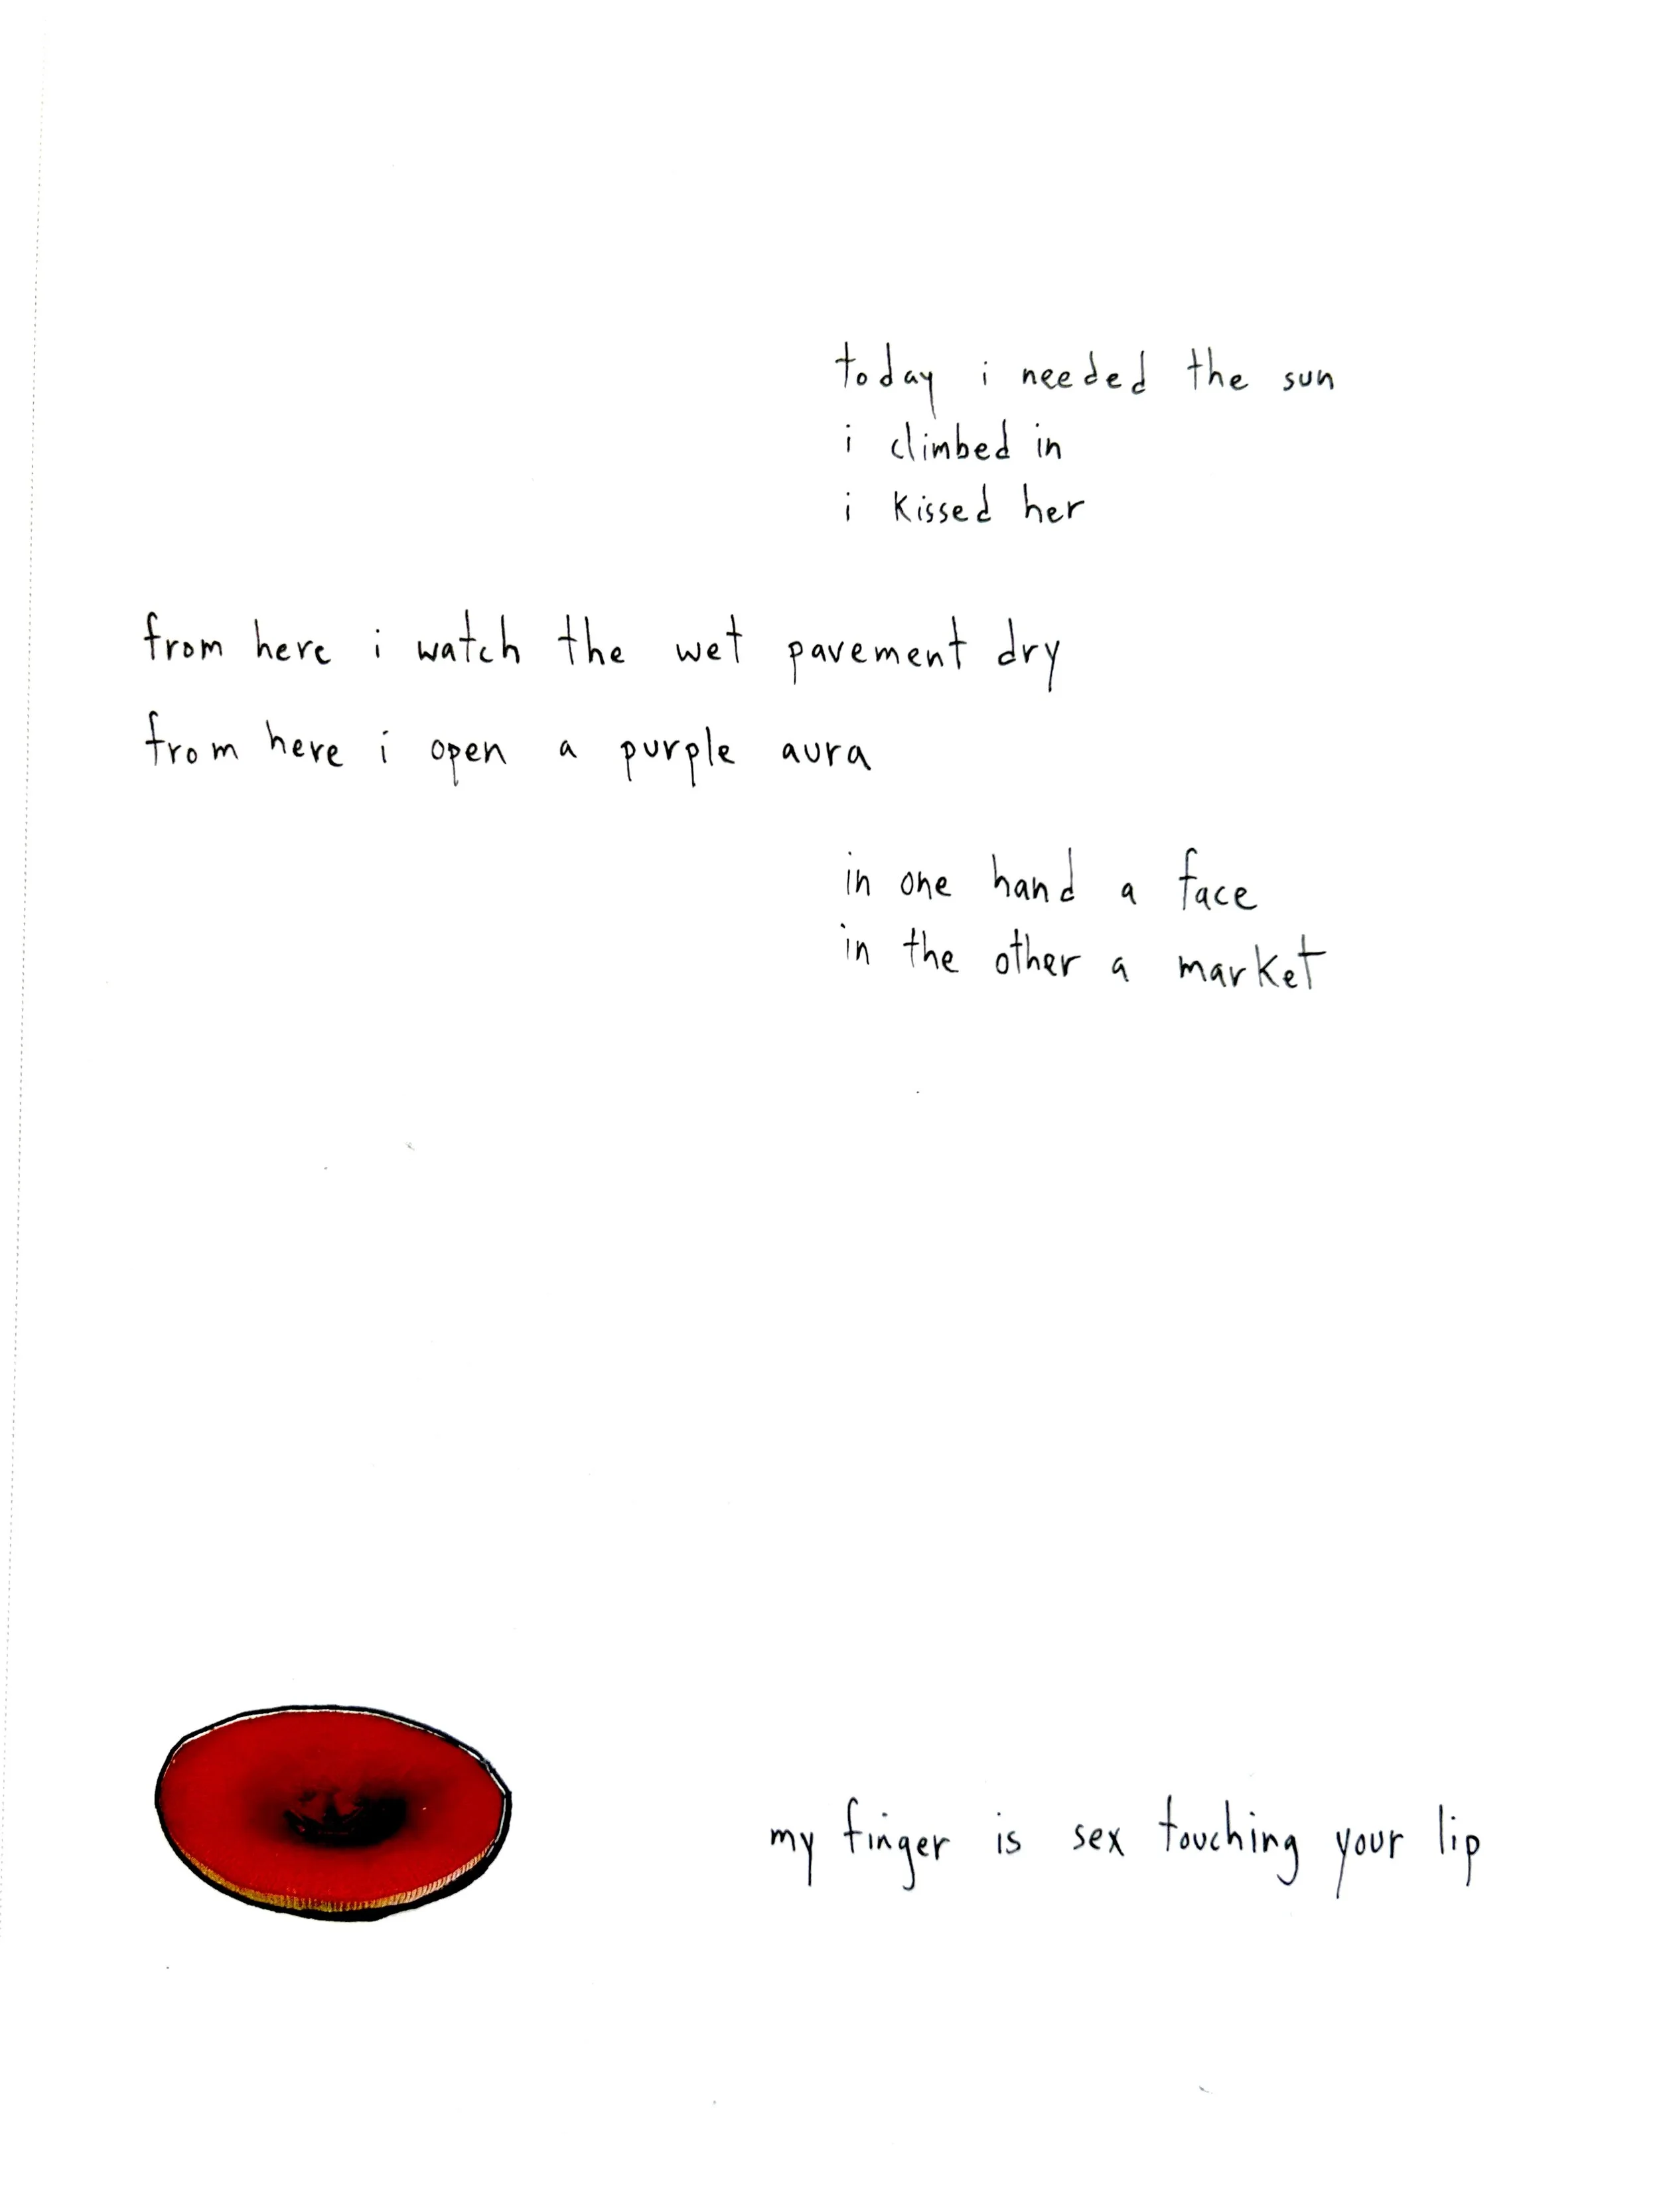 today i needed the sun
i climbed in
i kissed her
from here i watch the wet pavement dry
from here i open a purple aura
in one hand a face
in the other a market
my finger is sex touching your lip